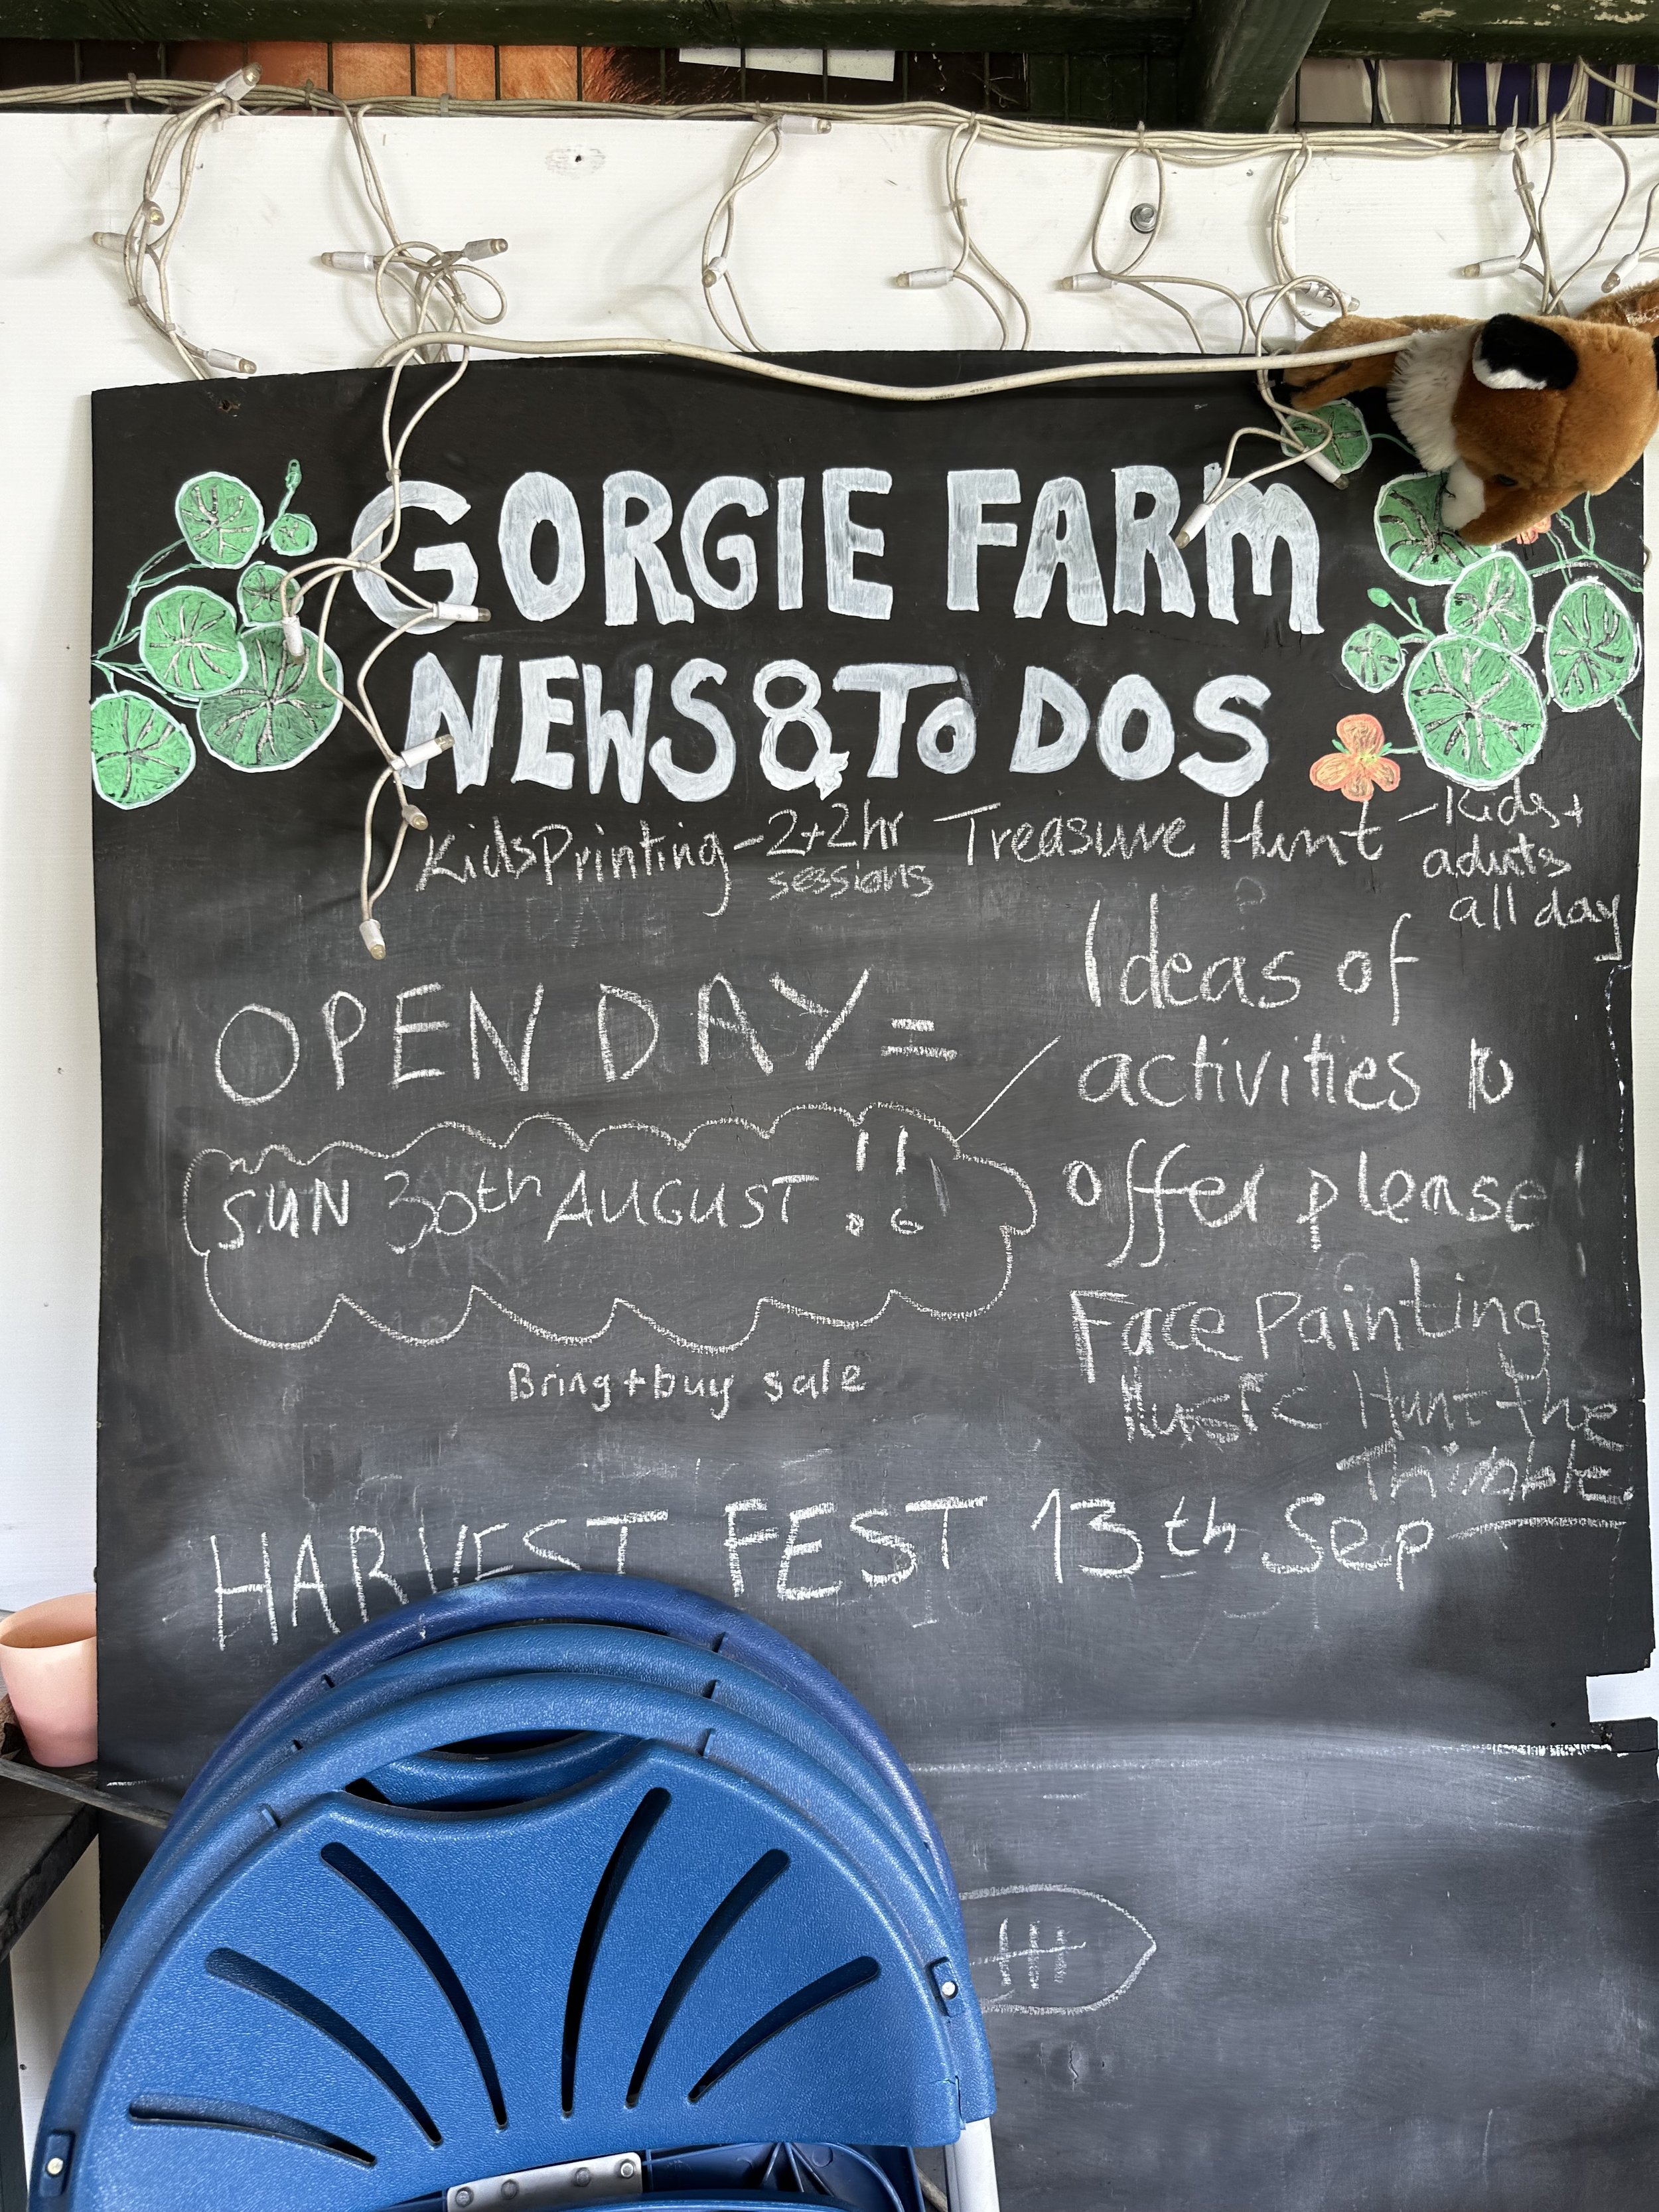 GORGIE FARM
NEWS & To DOS
Kids Printing - 2+2hr sessions
Treasure Hunt - Kids + adults all day
OPEN DAY =
SUN 30th AUGUST !!
Bring + buy sale
Ideas of
activities to
offer please
Face Painting
Music Hunt the
Thimble
HARVEST FEST 13th Sep